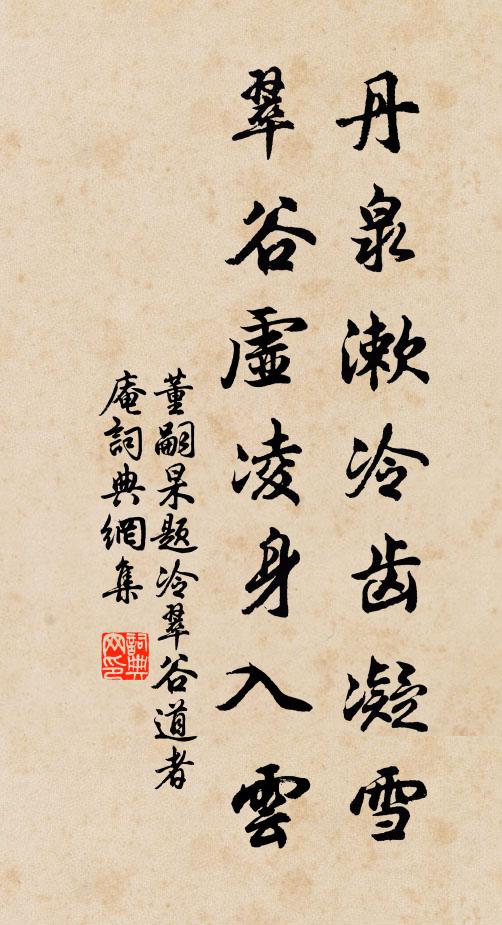 丹泉漱冷齿凝雪
翠谷虛凌身入雲
董嗣杲题冷翠谷道者
庵詞典網集
詞典網印